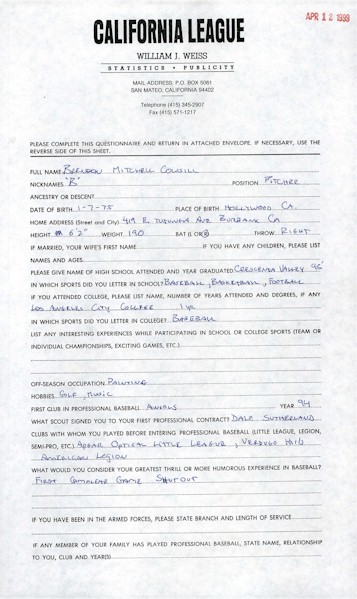 APR 12 1999
CALIFORNIA LEAGUE
WILLIAM J. WEISS
STATISTICS • PUBLICITY
MAIL ADDRESS, P.O. BOX 5061
SAN MATEO, CALIFORNIA 94402
Telephone (415) 345-2907
Fax (415) 571-1217
PLEASE COMPLETE THIS QUESTIONNAIRE AND RETURN IN ATTACHED ENVELOPE. IF NECESSARY, USE THE
REVERSE SIDE OF THIS SHEET.
FULL NAME BRENDON MITCHELL COWSILL
NICKNAMES "B" POSITION PITCHER
ANCESTRY OR DESCENT
DATE OF BIRTH 1-7-75 PLACE OF BIRTH HOLLYWOOD CA.
HOME ADDRESS (Street and City) 419 E. TUJUNGA AVE BURBANK CA
HEIGHT 6'2" WEIGHT 190 BAT (L OR R) THROW RIGHT
IF MARRIED, YOUR WIFE'S FIRST NAME IF YOU HAVE ANY CHILDREN, PLEASE LIST
NAMES AND AGES.
PLEASE GIVE NAME OF HIGH SCHOOL ATTENDED AND YEAR GRADUATED CRESCENTA VALLEY
IN WHICH SPORTS DID YOU LETTER IN SCHOOL? BASEBALL, BASKETBALL, FOOTBALL
IF YOU ATTENDED COLLEGE, PLEASE LIST NAME, NUMBER OF YEARS ATTENDED AND DEGREES, IF ANY
LOS ANGELES CITY COLLEGE 1 yr.
IN WHICH SPORTS DID YOU LETTER IN COLLEGE? BASEBALL
LIST ANY INTERESTING EXPERIENCES WHILE PARTICIPATING IN SCHOOL OR COLLEGE SPORTS (TEAM OR
INDIVIDUAL CHAMPIONSHIPS, EXCITING GAMES, ETC.)
OFF-SEASON OCCUPATION PAINTING
HOBBIES GOLF, MUSIC
FIRST CLUB IN PROFESSIONAL BASEBALL ANGELS YEAR 94
WHAT SCOUT SIGNED YOU TO YOUR FIRST PROFESSIONAL CONTRACT? DALE SUTHERLAND
CLUBS WITH WHOM YOU PLAYED BEFORE ENTERING PROFESSIONAL BASEBALL (LITTLE LEAGUE, LEGION,
SEMI-PRO, ETC.) OPTICAL LITTLE LEAGUE, VERDUGO HILLS
AMERICAN LEGION
WHAT WOULD YOU CONSIDER YOUR GREATEST THRILL OR MORE HUMOROUS EXPERIENCE IN BASEBALL?
FIRST COMPLETE GAME SHUTOUT
IF YOU HAVE BEEN IN THE ARMED FORCES, PLEASE STATE BRANCH AND LENGTH OF SERVICE
IF ANY MEMBER OF YOUR FAMILY HAS PLAYED PROFESSIONAL BASEBALL, STATE NAME, RELATIONSHIP
TO YOU, CLUB AND YEAR(S)